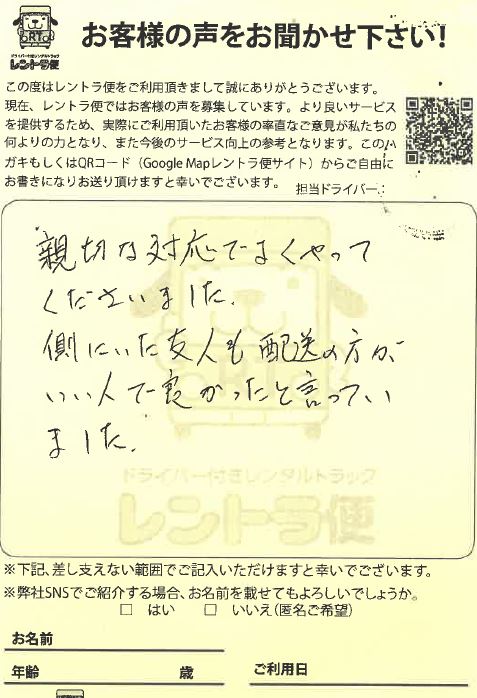 RT
ドライバー付きレンタルトラック
レントラ便
お客様の声をお聞かせ下さい!
この度はレントラ便をご利用頂きまして誠にありがとうございます。
現在、レントラ便ではお客様の声を募集しています。より良いサービス
を提供するため、実際にご利用頂いたお客様の率直なご意見が私たちの
何よりの力となり、また今後のサービス向上の参考となります。このハ
ガキもしくはQRコード（Google Mapレントラ便サイト）からご自由に
お書きになりお送り頂けますと幸いでございます。
担当ドライバー：
親切な対応でよくやって
くださいました.
側にいた友人も配送の方が
いい人で良かったと言ってい
ました.
ドライバー付きレンタルトラック
レントラ便
※下記、差し支えない範囲でご記入いただけますと幸いでございます。
※弊社SNSでご紹介する場合、お名前を載せてもよろしいでしょうか。
□ はい □ いいえ(匿名ご希望)
お名前
年齢 歳 ご利用日